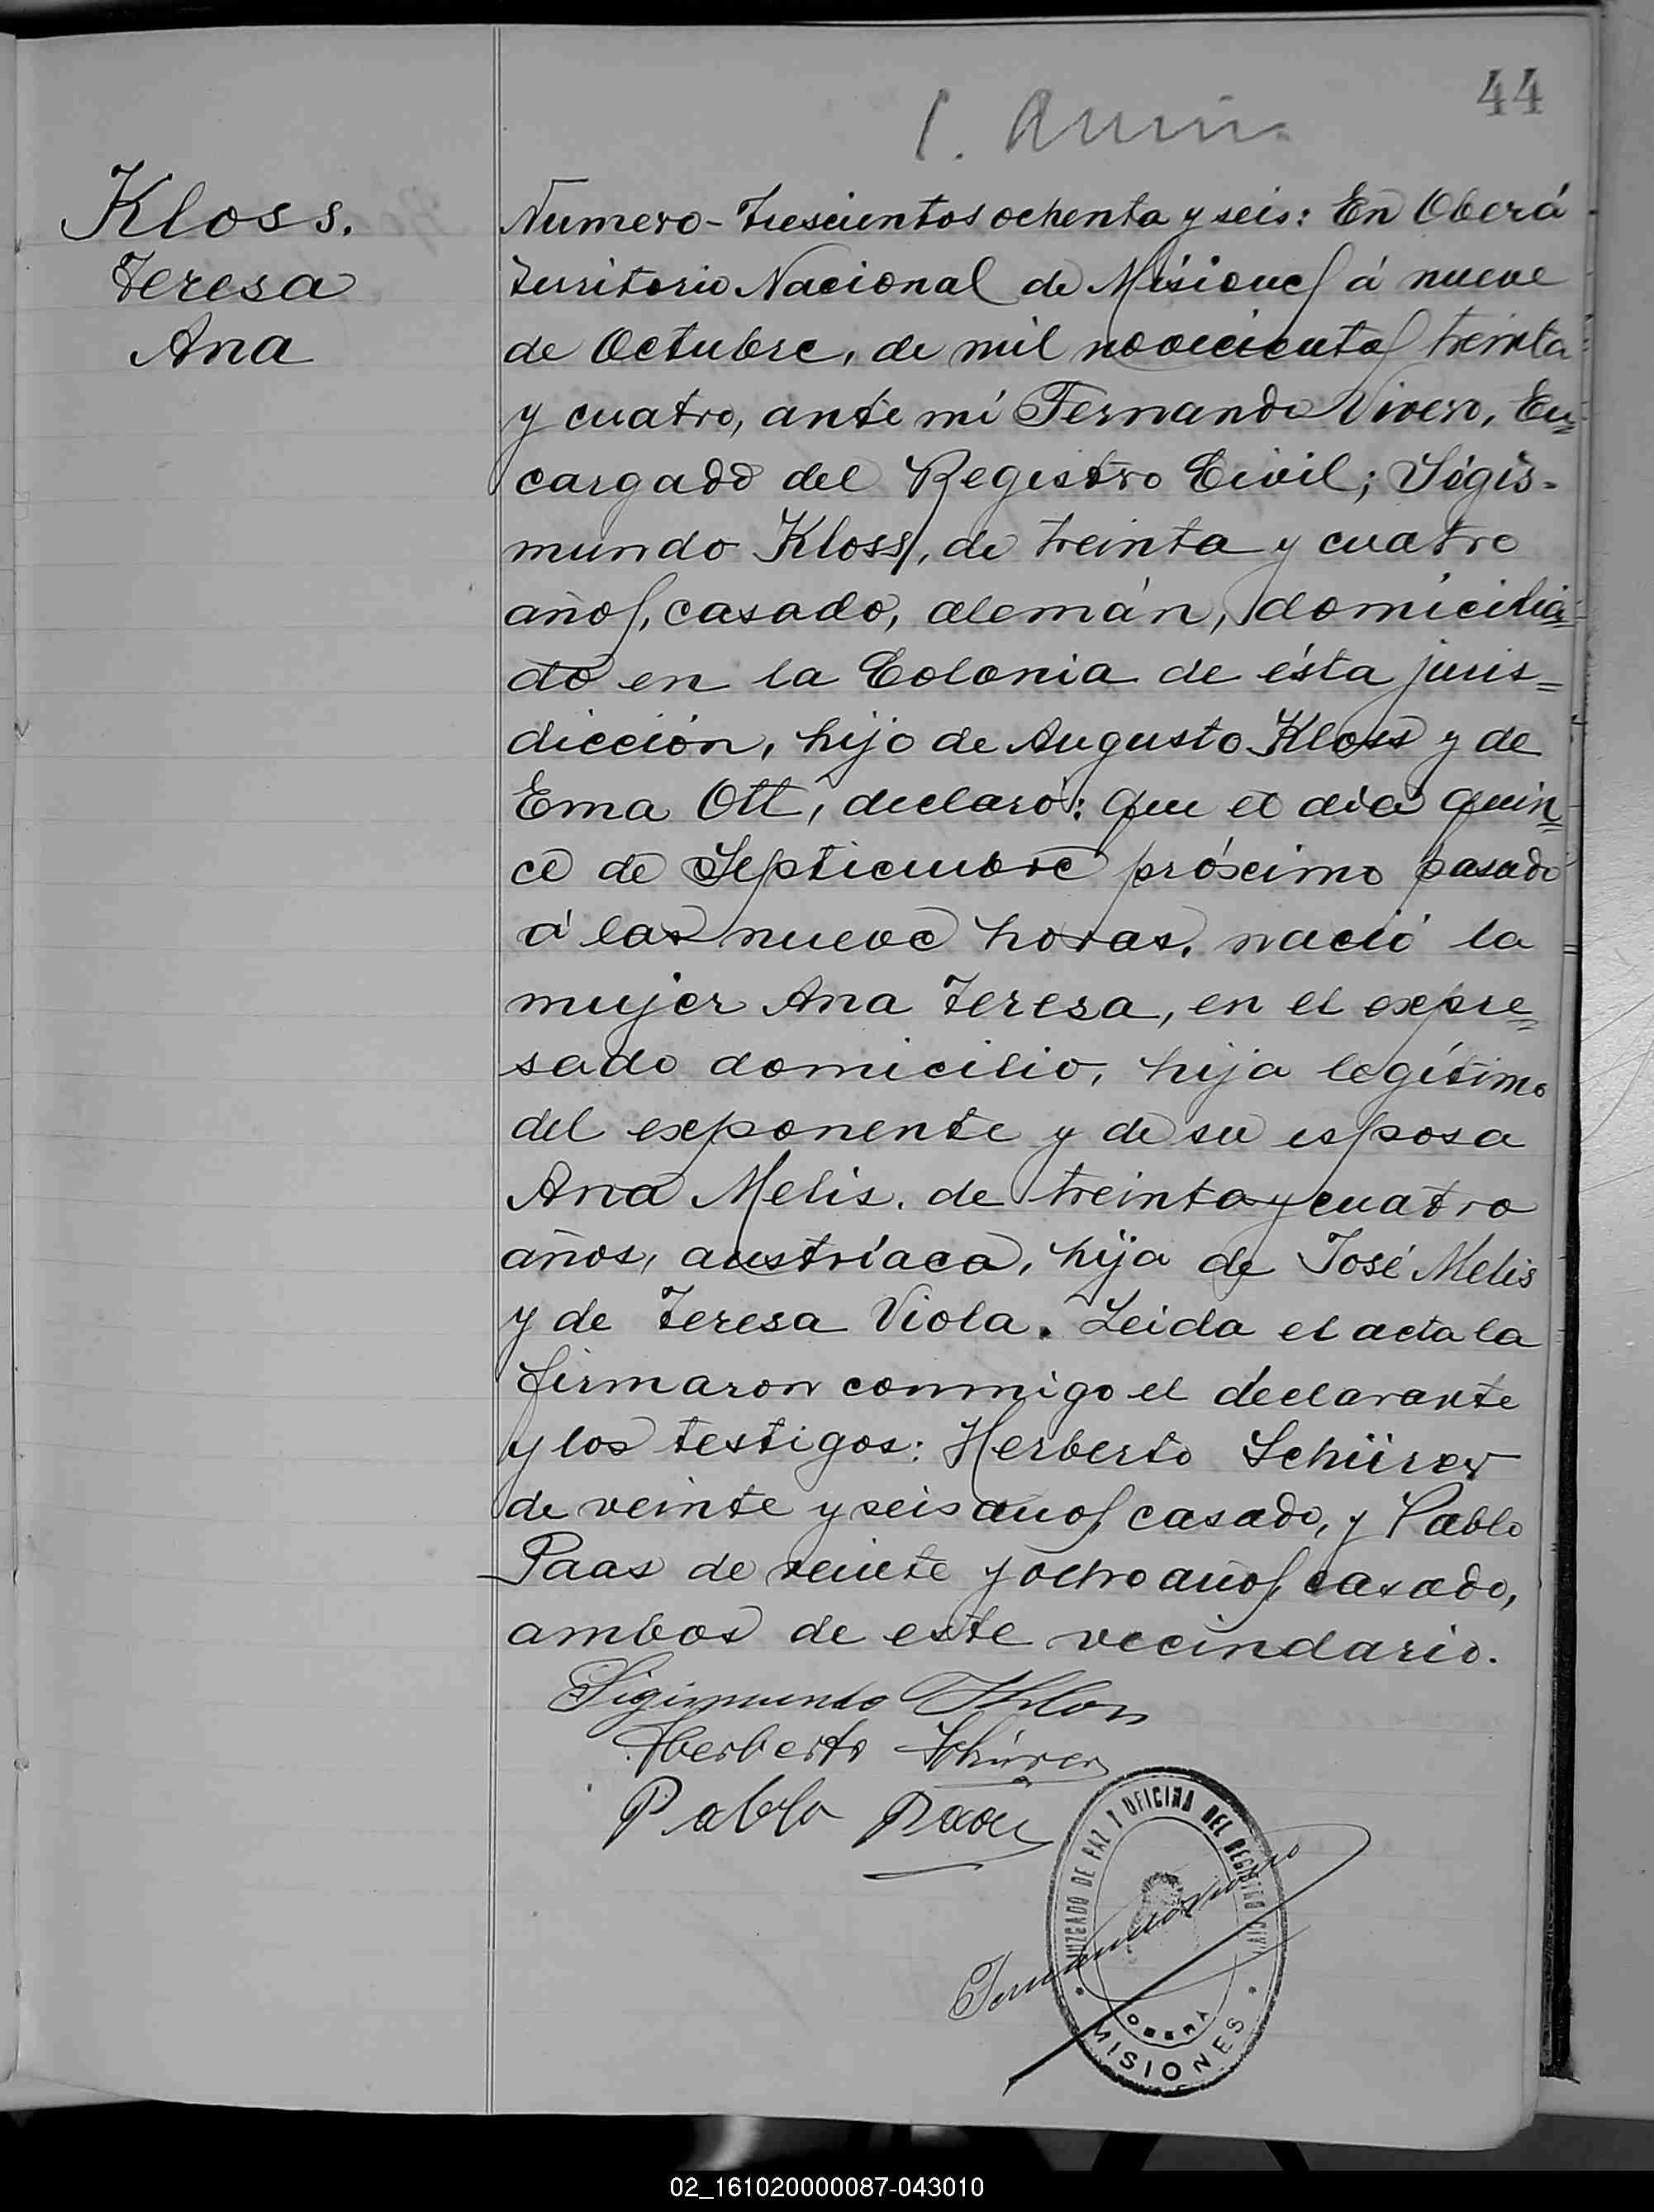 44
Kloss.
Teresa
Ana
Numero - Trescientos ochenta y seis: En Oberá
Territorio Nacional de Misiones á nueve
de Octubre, de mil novecientos treinta
y cuatro, ante mi Fernando Vivero, En=
cargado del Registro Civil; Sigis-
mundo Kloss, de treinta y cuatro
años, casado, alemán, domicilia=
do en la Colonia de ésta juris=
dicción, hijo de Augusto Kloss y de
Ema Ott, declaró: que el día quin=
ce de Septiembre próximo pasado
á las nueve horas, nació la
mujer Ana Teresa, en el expre=
sado domicilio, hija legítima
del exponente y de su esposa
Ana Melis. de treinta y cuatro
años, austríaca, hija de José Melis
y de Teresa Viola. Leida el acta la
firmaron conmigo el declarante
y los testigos: Herberto Schürer
de veinte y seis años casado, y Pablo
Paas de veinte y ocho años, casado,
ambos de este vecindario.
Sigismundo Kloss
Herberto Schürer
Pablo Paas
JUZGADO DE PAZ Y OFICINA DEL REGISTRO CIVIL
OBERÁ
MISIONES
02_161020000087-043010